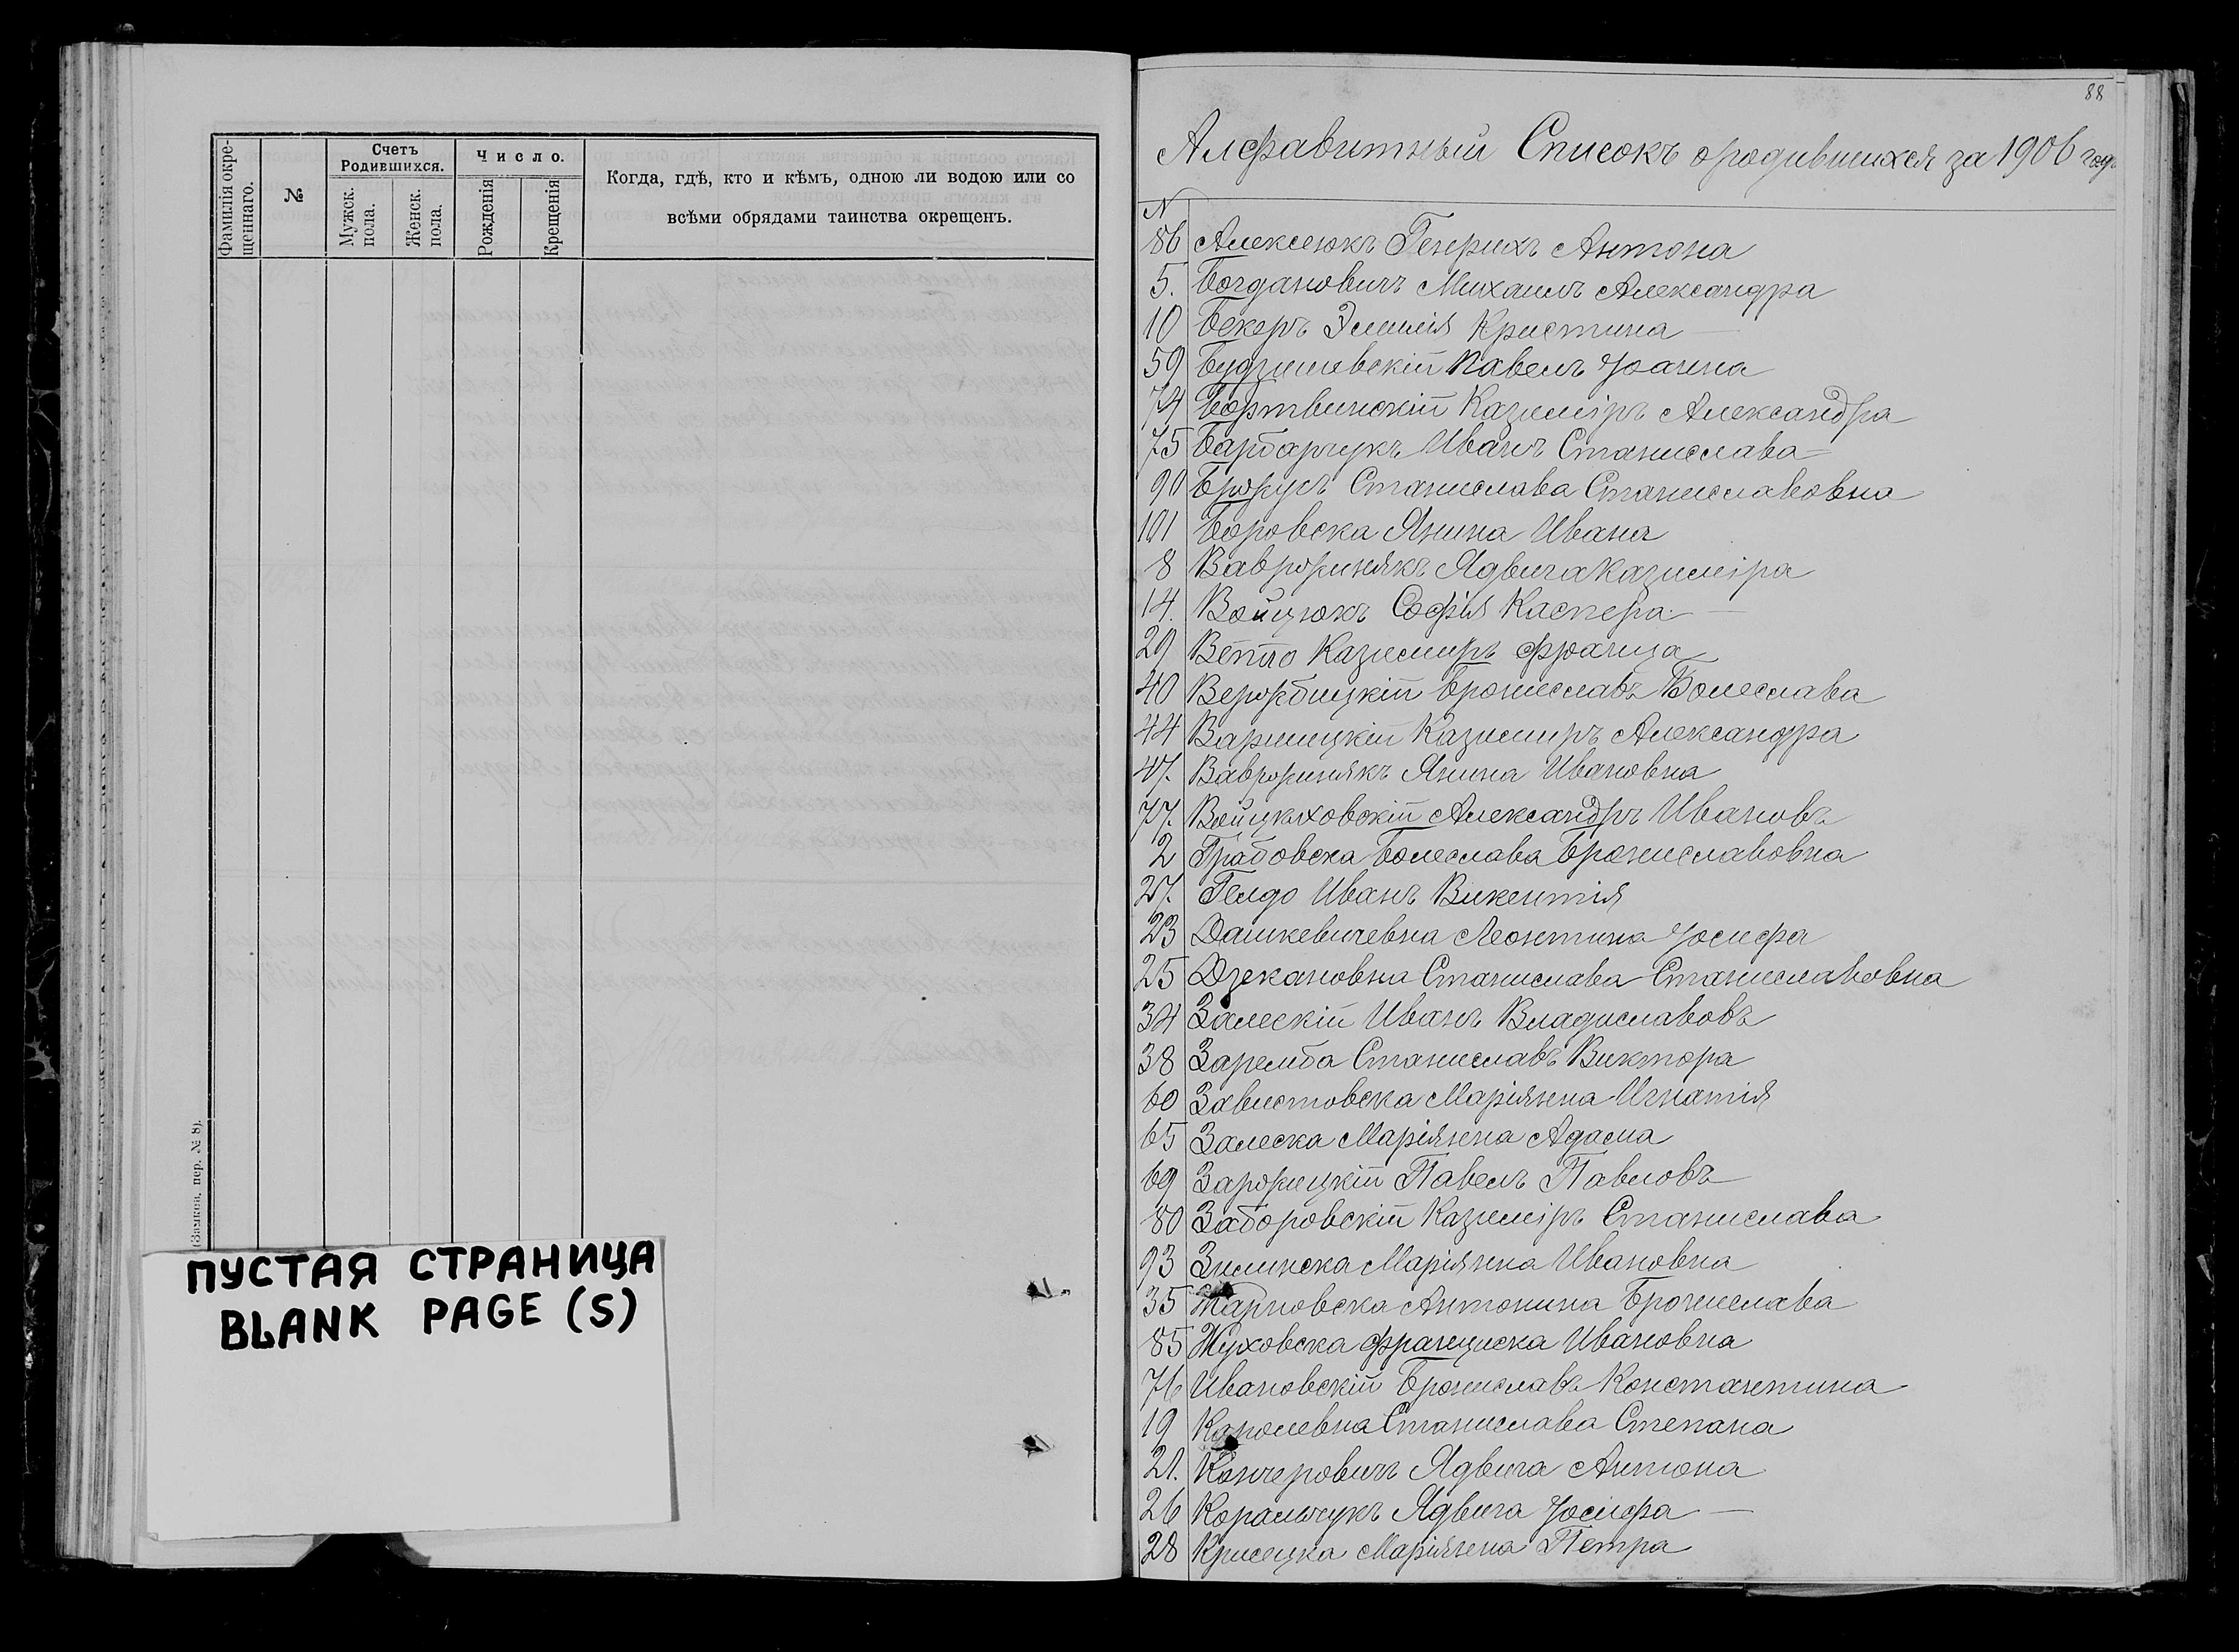 Фамилія окре-
щеннаго.
№
Счетъ
Родившихся.
Мужск.
пола.
Женск.
пола.
Число.
Рожденія
Крещенія
Когда, гдѣ, кто и кѣмъ, одною ли водою или со
всѣми обрядами таинства окрещенъ.
пер. № 8).
ПУСТАЯ СТРАНИЦА
BLANK PAGE (S)
88
Алфавитный Списокъ о родившихся за 1906 годъ
N
86 Алексеюкъ Генрихъ Антона
5. Богдановичъ Михаилъ Александра
10 Бекеръ Эмилія Кристина
59 Будзишевскій Павелъ Іоанна
74 Бортвинскій Казиміръ Александра
75 Барбарчукъ Иванъ Станислава
90 Станислава Станиславовна
101 Боровска Янина Ивана
8 Вавржинякъ Ядвига Казиміра
14. Войцюкъ Софія Каспера
29 Казимиръ Франца
40 Вержбицкій Брониславъ Болеслава
44 Варшицкій Казимиръ Александра
47. Вавржинякъ Янина Ивановна
77. Войцѣховскій Александръ Ивановъ
2 Грабовска Болеслава Брониславовна
27. Гелдо Иванъ Викентія
23 Дашкевичевна Леонтина Іосифа
25 Дзекановна Станислава Станиславовна
34 Залескій Иванъ Владиславовъ
38 Заремба Станиславъ Виктора
60 Завистовска Маріянна Игнатія
65 Залеска Маріянна Адама
69 Заржицкій Павелъ Павловъ
80 Заборовскій Казиміръ Станислава
93 Зилинска Маріянна Ивановна
35 Жарновска Антонина Бронислава
85 Жуховска Франциска Ивановна
76 Ивановскій Брониславъ Константина
19 Каролевна Станислава Степана
21. Канчеровичъ Ядвига Антона
26 Коральчукъ Ядвига Іосифа
28 Крисецка Маріянна Петра